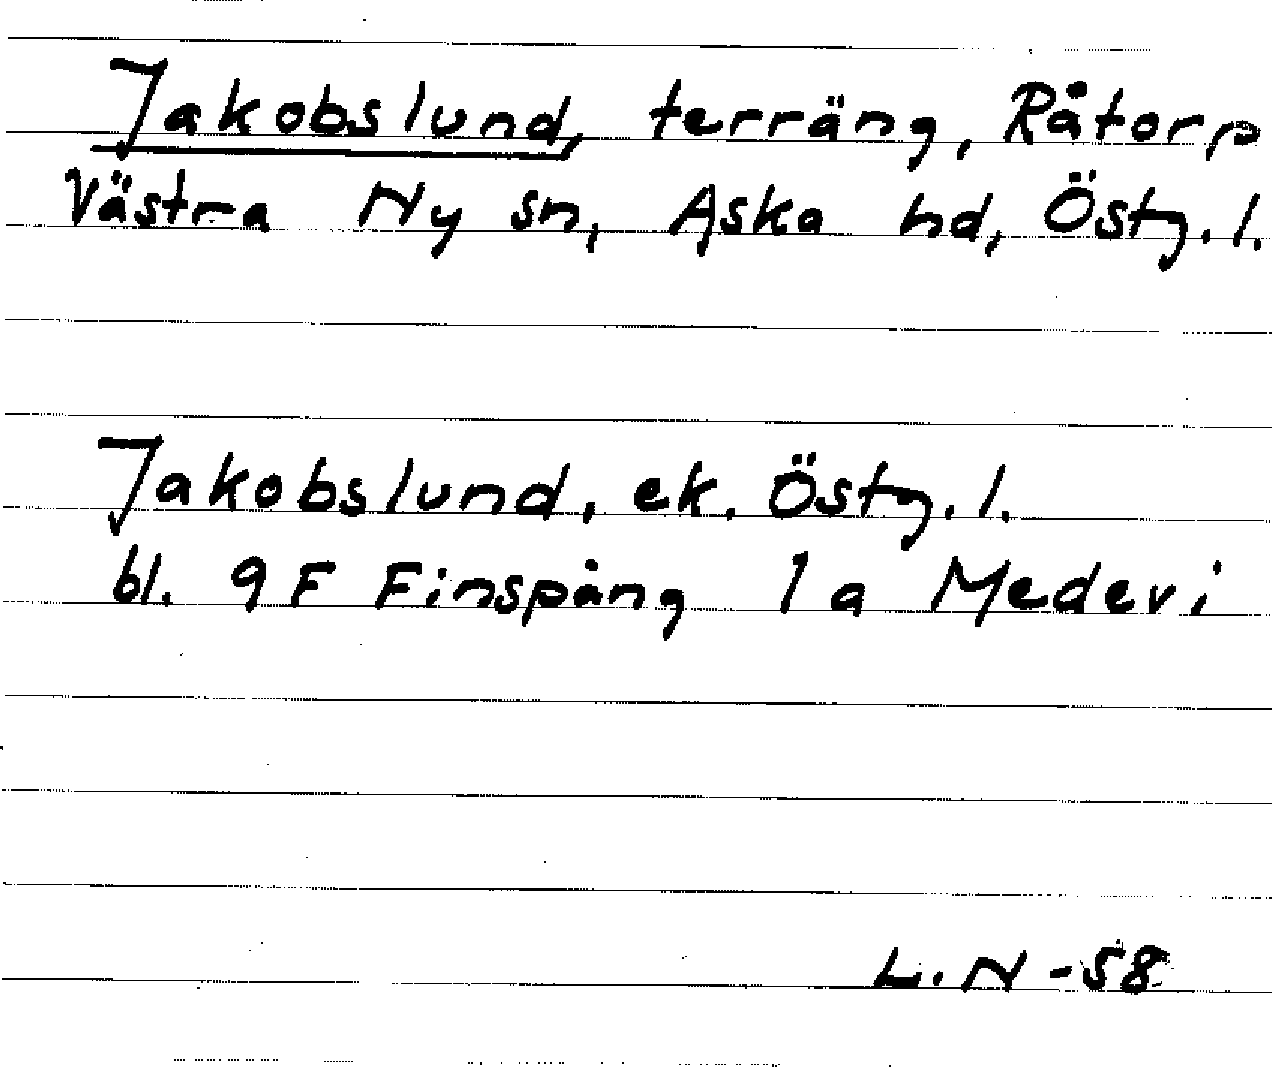 Jakobslund, terräng, Råtorp
Västra Ny sn, Aska hd, Östg. l.
Jakobslund, ek. Östg. l.
bl. 9F Finspång 1a Medevi
L.N -58